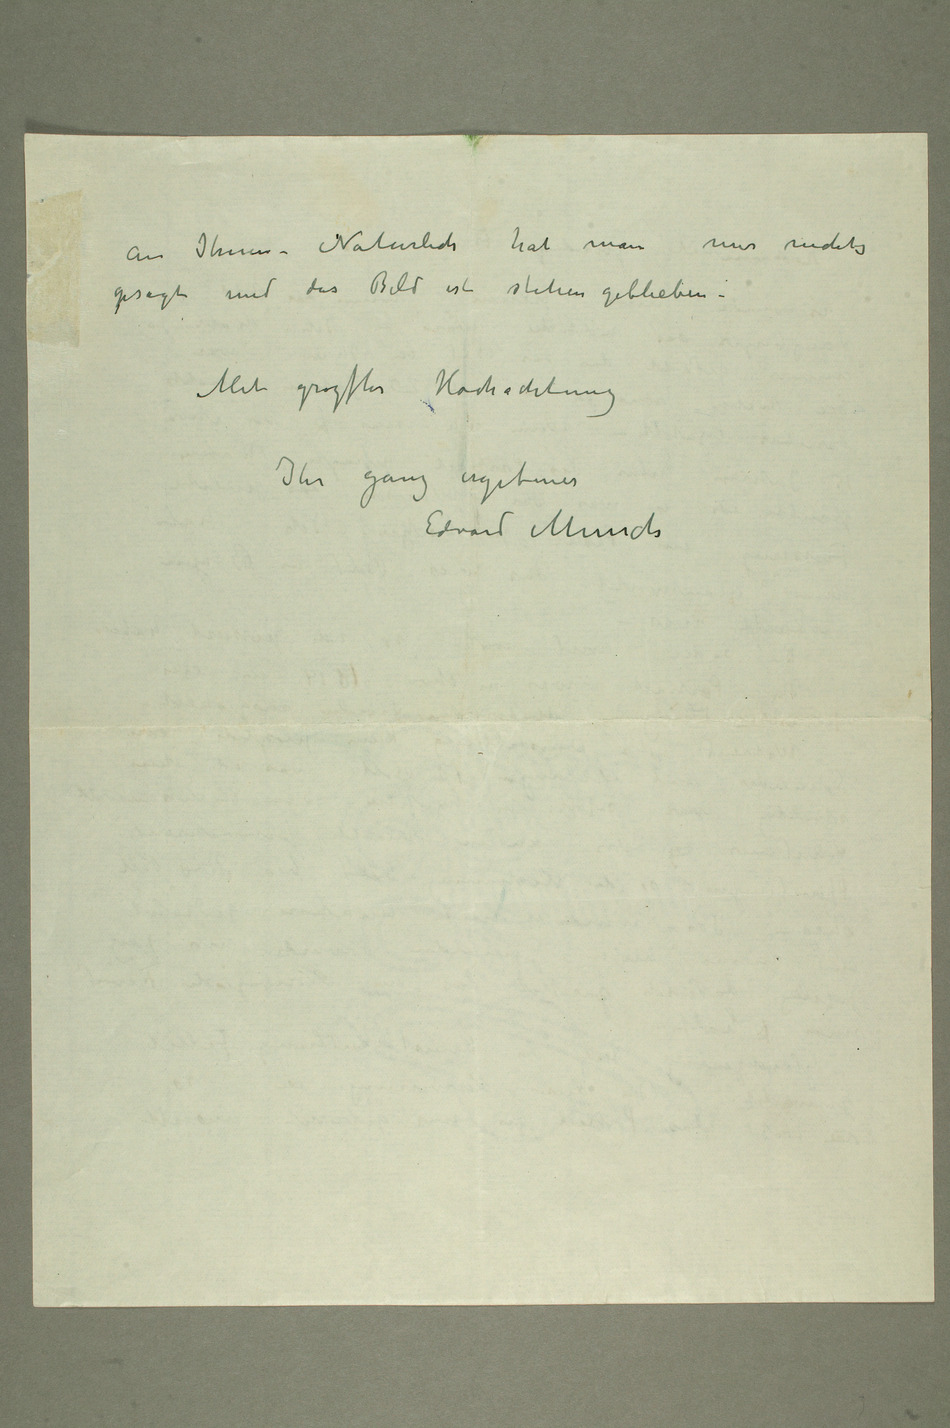 an Ihnen – Naturlich hat man mir nichts
gesagt und das Bild ist stehen geblieben –
Mit grozster Hochachtung
Ihr ganz ergebener
Edvard Munch